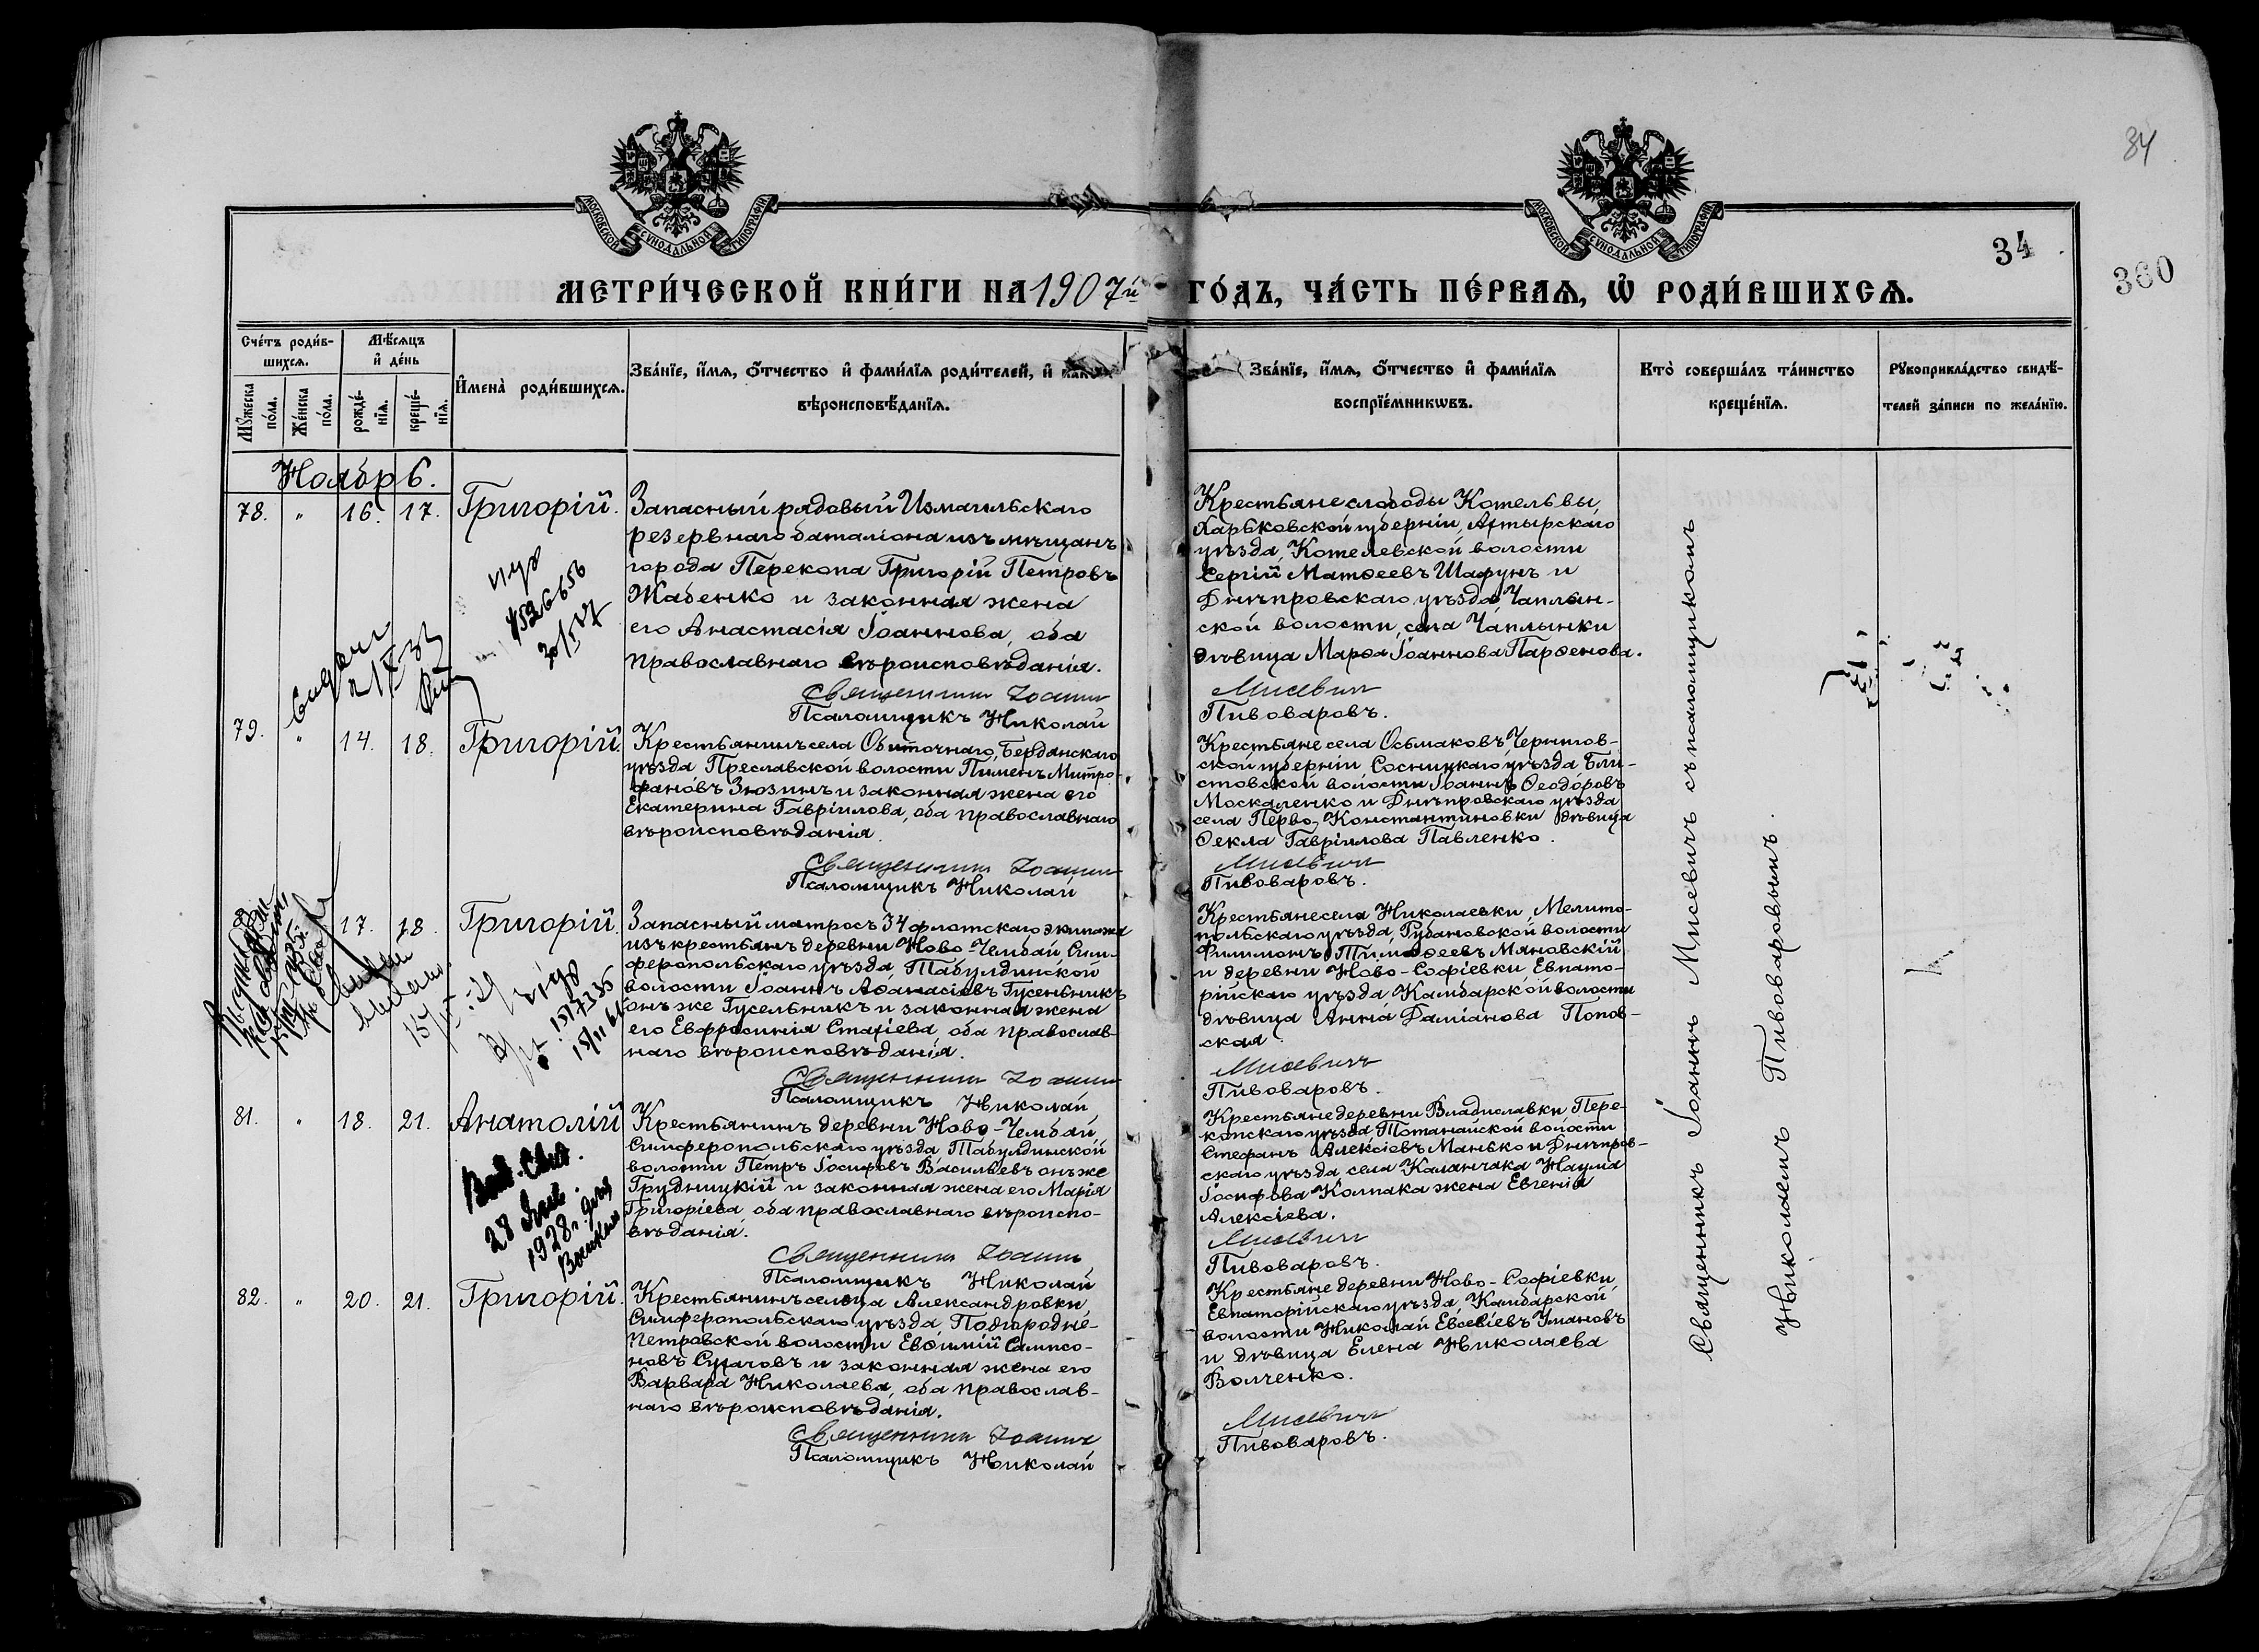 84
34
360
МОСКОВСКОЙ СѴНОДАЛЬНОЙ ТИПОГРАФІИ
МОСКОВСКОЙ СѴНОДАЛЬНОЙ ТИПОГРАФІИ
МЕТРИ́ЧЕСКОЙ КНИ́ГИ НА 1907й ГО́ДЪ, ЧА́СТЬ ПЕ́РВАЯ, Ѽ РОДИ́ВШИХСЯ.
Сче́тъ роди́в-
шихся.
Мѣ́сяцъ
и де́нь
Мꙋ́жеска
по́ла.
Же́нска
по́ла.
рожде́-
нїя.
креще́-
нїя.
Имена̀ роди́вшихся.
Зва́нїе, и́мя, ѻ́тчество и фами́лїя роди́телей, и
вѣроисповѣ́данїя.
Зва́нїе, и́мя, ѻ́тчество и фами́лїя
воспрїе́мникѡвъ.
Кто̀ соверша́лъ та́инство
креще́нїя.
Рꙋкоприкла́дство свидѣ́-
телей за́писи по жела́нїю.
Ноябрь.
78. " 16. 17. Григорій.
Запасный рядовый Измаильскаго
резервнаго баталіона изъ мѣщанъ
города Перекопа Григорій Петровъ
Жабенко и законная жена
его Анастасія Іоаннова, оба
православнаго вѣроисповѣданія.
Священникъ Іоаннъ
Псаломщикъ Николай
Крестьяне слободы Котельвы,
Харьковской губерніи, Ахтырскаго
уѣзда, Котелевской волости
Сергій Матѳеевъ Шафунъ и
Днѣпровскаго уѣзда, Чаплын-
ской волости, села Чаплынки
дѣвица Марѳа Іоаннова Парѳенова.
Мисевичъ
Пивоваровъ.
79. " 14. 18. Григорій.
Крестьянинъ села Обиточнаго, Бердянскаго
уѣзда Преславской волости Пименъ Митро-
фановъ Зюзинъ и законная жена его
Екатерина Гавріилова, оба православнаго
вѣроисповѣданія.
Священникъ Іоаннъ
Псаломщикъ Николай
Крестьяне села Осьмаковъ Чернигов-
ской губерніи Сосницкаго уѣзда Бли-
стовской волости Іоаннъ Ѳеодоровъ
Москаленко и Днѣпровскаго уѣзда
села Перво-Константиновки дѣвица
Ѳекла Гавріилова Павленко.
Мисевичъ
Пивоваровъ.
17. 18. Григорій.
Запасный матросъ 34 флотскаго экипажа
изъ крестьянъ деревни Ново-Чембай Сим-
феропольскаго уѣзда, Табулдинской
волости Іоаннъ Аѳанасіевъ Гусенникъ
онъ же Гусельникъ и законная жена
его Евфросинія Стахіева, оба православ-
наго вѣроисповѣданія.
Священникъ Іоаннъ
Псаломщикъ Николай
Крестьяне села Николаевки, Мелито-
польскаго уѣзда, Рубановской волости
Филимонъ Тимоѳеевъ Мяновскій
и деревни Ново-Софіевки, Евпато-
рійскаго уѣзда, Камбарской волости
дѣвица Анна Даміанова Попов-
ская.
Мисевичъ
Пивоваровъ.
81. " 18. 21. Анатолій
Крестьянинъ деревни Ново-Чембай
Симферопольскаго уѣзда, Табулдинской
волости Петръ Іосифовъ Васильевъ онъ же
Грудницкій и законная жена его Марія
Григоріева, оба православнаго вѣроиспо-
вѣданія.
Священникъ Іоаннъ
Псаломщикъ Николай
Крестьяне деревни Владиславки Пере-
копскаго уѣзда Тотанайской волости
Стефанъ Алексіевъ Манько и Днѣпров-
скаго уѣзда села Каланчака Наума
Іосифова Колпака жена Евгенія
Алексіева.
Мисевичъ
Пивоваровъ.
28
1928 г.
82. " 20. 21. Григорій.
Крестьянинъ сельца Александровки,
Симферопольскаго уѣзда Подгородне-
Петровской волости Евѳимій Сампсо-
новъ Сугачовъ и законная жена его
Варвара Николаева, оба православ-
наго вѣроисповѣданія.
Священникъ Іоаннъ
Псаломщикъ Николай
Крестьяне деревни Ново-Софіевки,
Евпаторійскаго уѣзда, Камбарской
волости Николай Евсевіевъ Умановъ
и дѣвица Елена Николаева
Волченко.
Мисевичъ
Пивоваровъ.
Священникъ Іоаннъ Мисевичъ съ псаломщикомъ
Николаемъ Пивоваровымъ.